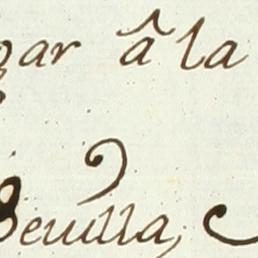 gar â la
Seuilla,